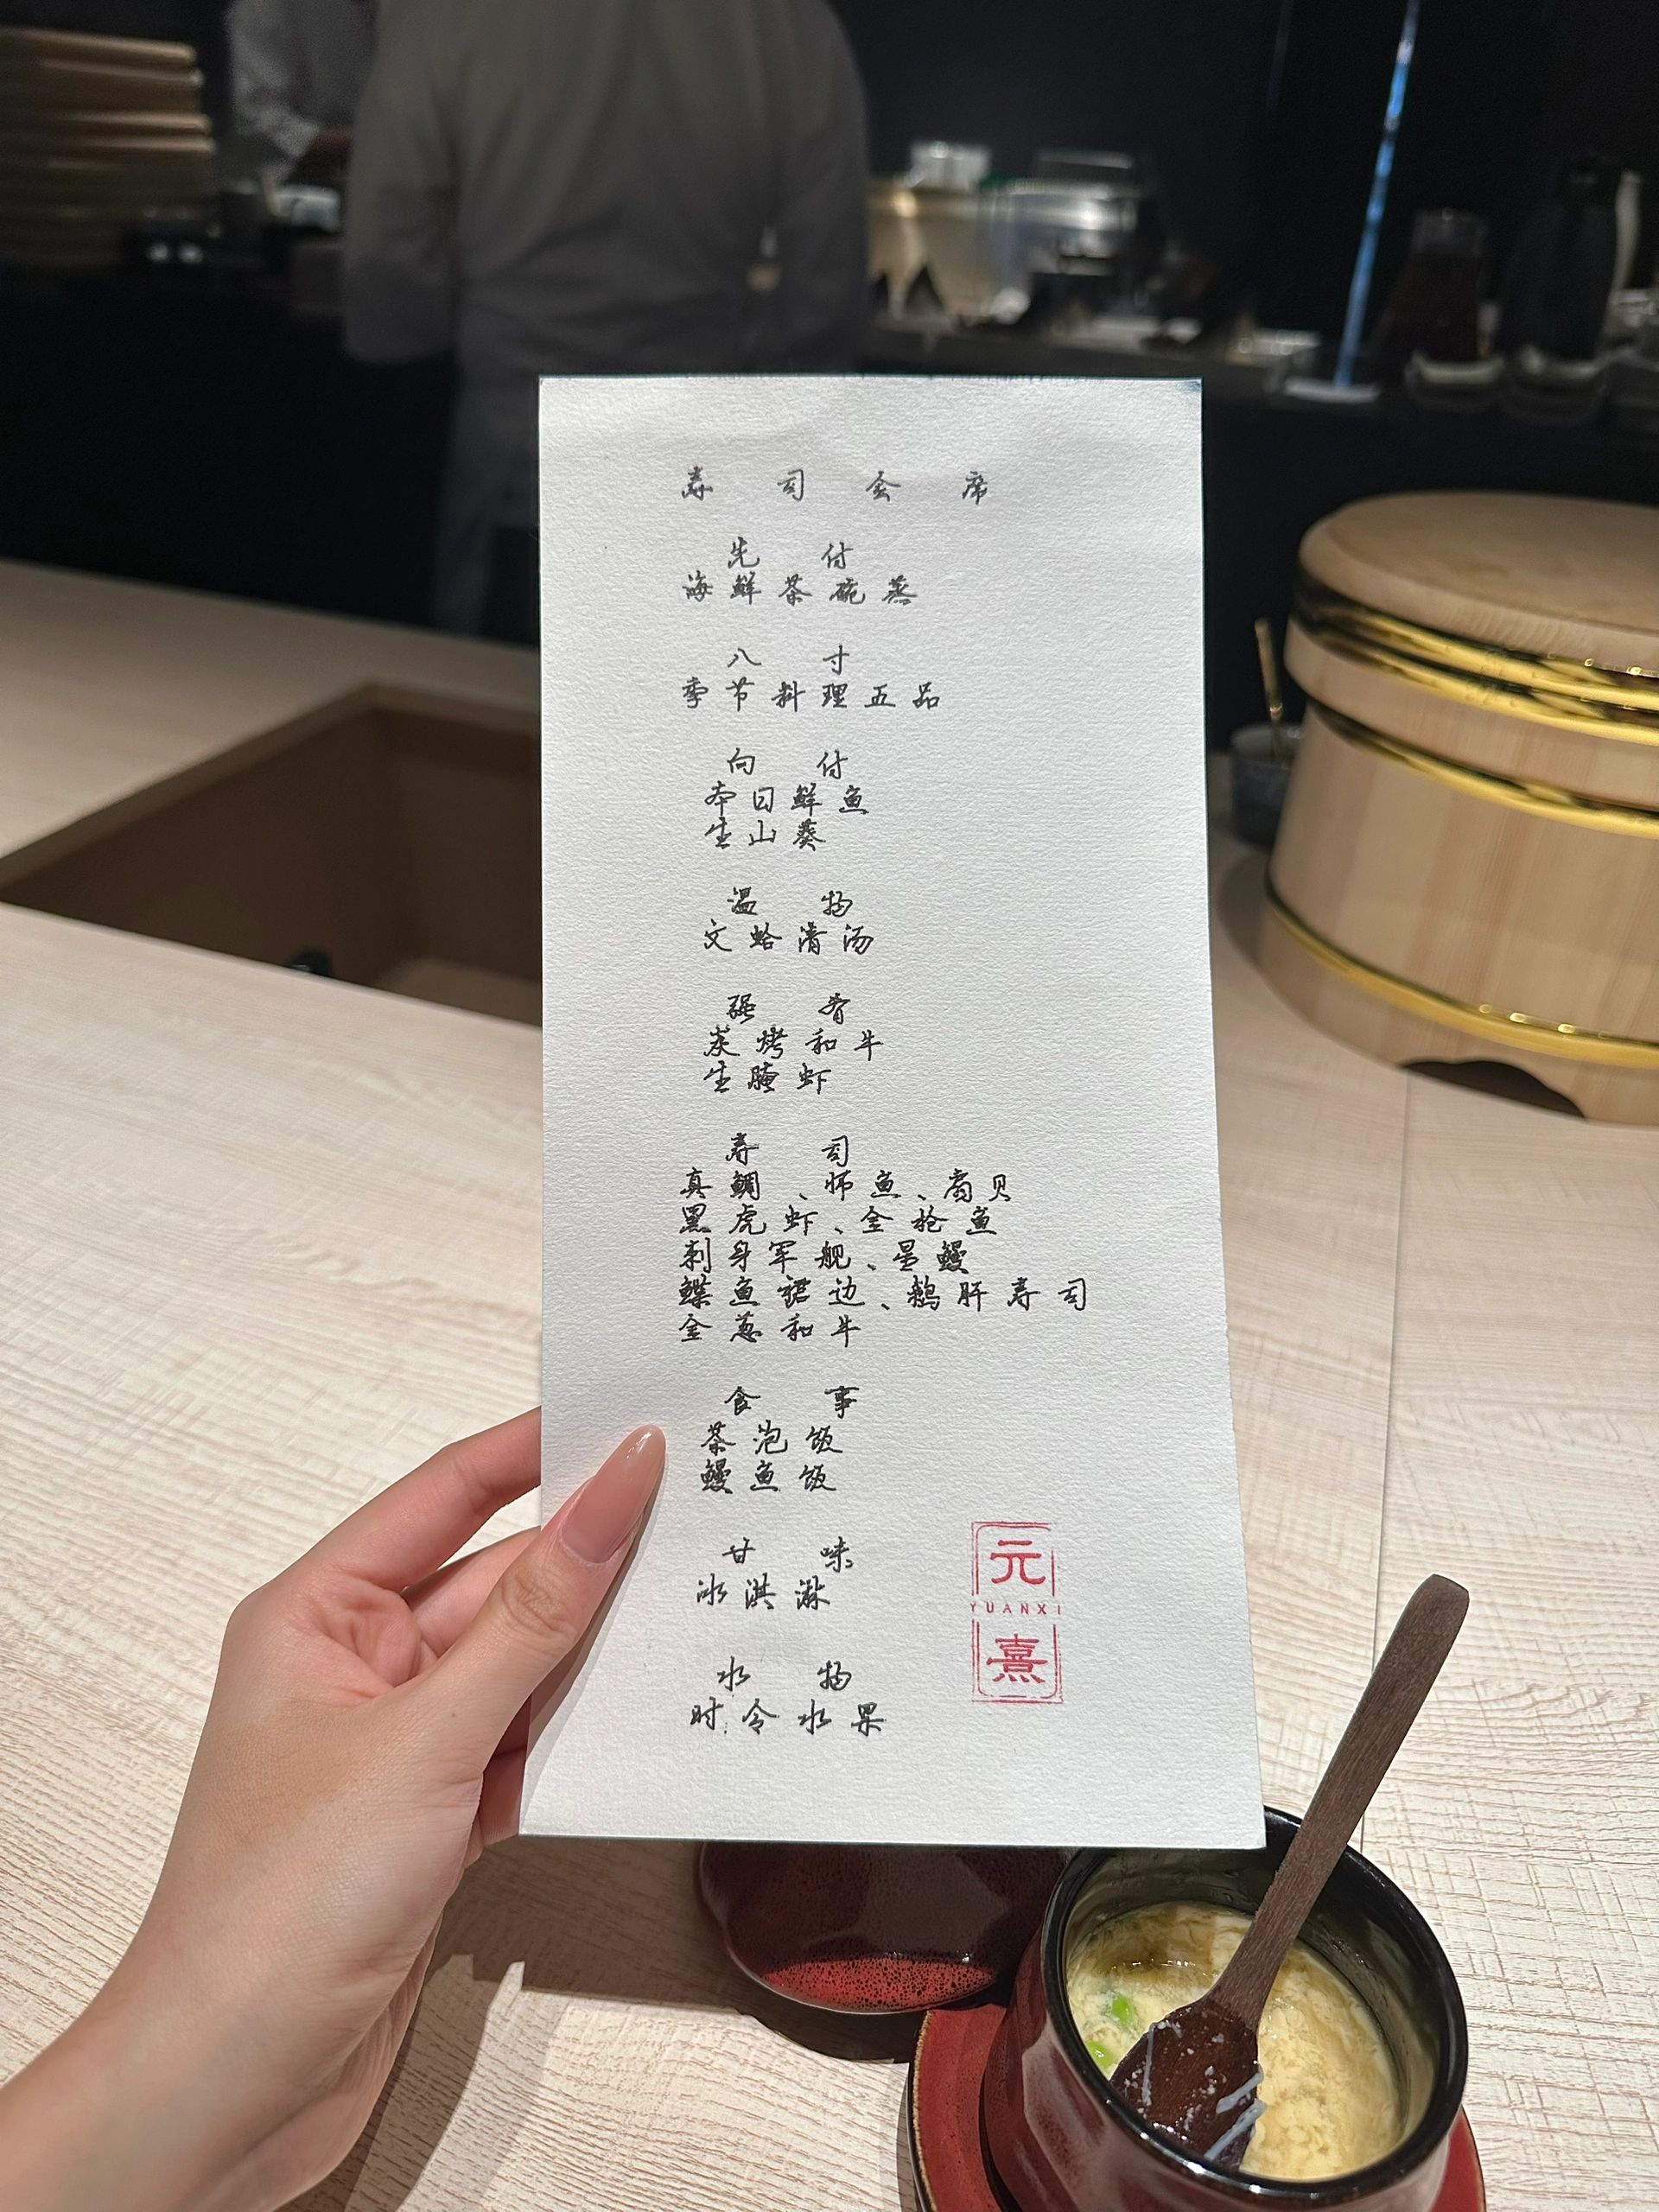 寿司会席
先付
海鲜茶碗蒸
八寸
季节料理五品
向付
本日鲜鱼
生山葵
温物
文蛤清汤
强肴
炭烤和牛
生腌虾
寿司
真鲷、鰤鱼、扇贝
黑虎虾、金枪鱼
刺身军舰、星鳗
鲽鱼裙边、鹅肝寿司
金葱和牛
食事
茶泡饭
鳗鱼饭
甘味
冰淇淋
水物
时令水果
元
YUANXI
熹